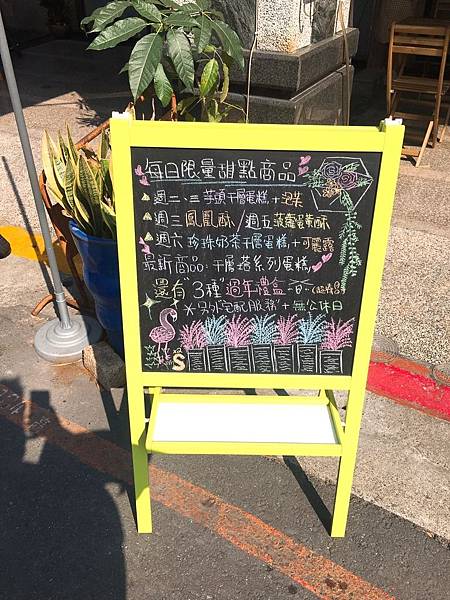 每日限量甜點商品
週二、三 芋頭千層蛋糕 + 泡芙
週三 鳳凰酥 / 週五 菠蘿蛋黃酥
週六 珍珠奶茶千層蛋糕 + 可麗露
最新商品:千層塔系列蛋糕
還有"3種"過年禮盒
*另外"宅配服務"+無公休日